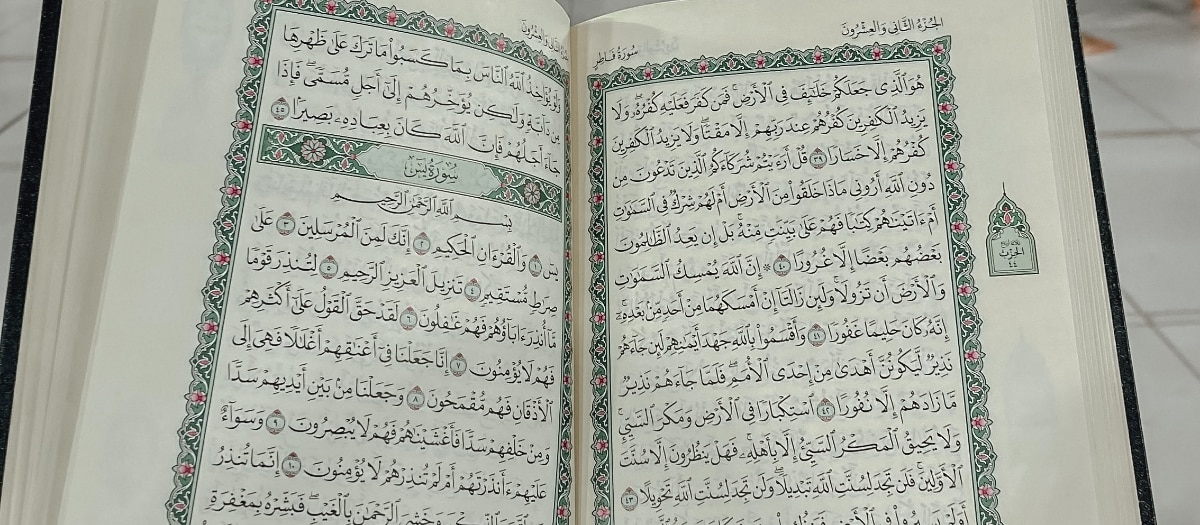 الجُزْءُ الثَّانِي وَالعِشْرُونَ
سُورَةُ فَاطِرٍ
هُوَ ٱلَّذِى جَعَلَكُمْ خَلَٰٓئِفَ فِى ٱلْأَرْضِ ۚ فَمَن كَفَرَ فَعَلَيْهِ كُفْرُهُۥ ۖ وَلَا
يَزِيدُ ٱلْكَٰفِرِينَ كُفْرُهُمْ عِندَ رَبِّهِمْ إِلَّا مَقْتًا ۖ وَلَا يَزِيدُ ٱلْكَٰفِرِينَ
كُفْرُهُمْ إِلَّا خَسَارًا ٣٩ قُلْ أَرَءَيْتُمْ شُرَكَآءَكُمُ ٱلَّذِينَ تَدْعُونَ مِن
دُونِ ٱللَّهِ أَرُونِى مَاذَا خَلَقُوا۟ مِنَ ٱلْأَرْضِ أَمْ لَهُمْ شِرْكٌ فِى ٱلسَّمَٰوَٰتِ
أَمْ ءَاتَيْنَٰهُمْ كِتَٰبًا فَهُمْ عَلَىٰ بَيِّنَتٍ مِّنْهُ ۚ بَلْ إِن يَعِدُ ٱلظَّٰلِمُونَ
بَعْضُهُم بَعْضًا إِلَّا غُرُورًا ٤٠ ۞ إِنَّ ٱللَّهَ يُمْسِكُ ٱلسَّمَٰوَٰتِ
وَٱلْأَرْضَ أَن تَزُولَا ۚ وَلَئِن زَالَتَآ إِنْ أَمْسَكَهُمَا مِنْ أَحَدٍ مِّنۢ بَعْدِهِۦٓ ۚ
إِنَّهُۥ كَانَ حَلِيمًا غَفُورًا ٤١ وَأَقْسَمُوا۟ بِٱللَّهِ جَهْدَ أَيْمَٰنِهِمْ لَئِن جَآءَهُمْ
نَذِيرٌ لَّيَكُونُنَّ أَهْدَىٰ مِنْ إِحْدَى ٱلْأُمَمِ ۖ فَلَمَّا جَآءَهُمْ نَذِيرٌ
مَّا زَادَهُمْ إِلَّا نُفُورًا ٤٢ ٱسْتِكْبَارًا فِى ٱلْأَرْضِ وَمَكْرَ ٱلسَّيِّئِ ۚ
وَلَا يَحِيقُ ٱلْمَكْرُ ٱلسَّيِّئُ إِلَّا بِأَهْلِهِۦ ۚ فَهَلْ يَنظُرُونَ إِلَّا سُنَّتَ
ٱلْأَوَّلِينَ ۚ فَلَن تَجِدَ لِسُنَّتِ ٱللَّهِ تَبْدِيلًا ۖ وَلَن تَجِدَ لِسُنَّتِ ٱللَّهِ تَحْوِيلًا ٤٣
الحِزْبُ
٤٤
وَلَوْ يُؤَاخِذُ ٱللَّهُ ٱلنَّاسَ بِمَا كَسَبُوا۟ مَا تَرَكَ عَلَىٰ ظَهْرِهَا
مِن دَآبَّةٍ وَلَٰكِن يُؤَخِّرُهُمْ إِلَىٰٓ أَجَلٍ مُّسَمًّى ۖ فَإِذَا
جَآءَ أَجَلُهُمْ فَإِنَّ ٱللَّهَ كَانَ بِعِبَادِهِۦ بَصِيرًۢا ٤٥
سُورَةُ يسٓ
بِسْمِ ٱللَّهِ ٱلرَّحْمَٰنِ ٱلرَّحِيمِ
يسٓ ١ وَٱلْقُرْءَانِ ٱلْحَكِيمِ ٢ إِنَّكَ لَمِنَ ٱلْمُرْسَلِينَ ٣ عَلَىٰ
صِرَٰطٍ مُّسْتَقِيمٍ ٤ تَنزِيلَ ٱلْعَزِيزِ ٱلرَّحِيمِ ٥ لِتُنذِرَ قَوْمًا
مَّآ أُنذِرَ ءَابَآؤُهُمْ فَهُمْ غَٰفِلُونَ ٦ لَقَدْ حَقَّ ٱلْقَوْلُ عَلَىٰٓ أَكْثَرِهِمْ
فَهُمْ لَا يُؤْمِنُونَ ٧ إِنَّا جَعَلْنَا فِىٓ أَعْنَٰقِهِمْ أَغْلَٰلًا فَهِىَ إِلَى
ٱلْأَذْقَانِ فَهُم مُّقْمَحُونَ ٨ وَجَعَلْنَا مِنۢ بَيْنِ أَيْدِيهِمْ سَدًّا
وَمِنْ خَلْفِهِمْ سَدًّا فَأَغْشَيْنَٰهُمْ فَهُمْ لَا يُبْصِرُونَ ٩ وَسَوَآءٌ
عَلَيْهِمْ ءَأَنذَرْتَهُمْ أَمْ لَمْ تُنذِرْهُمْ لَا يُؤْمِنُونَ ١٠ إِنَّمَا تُنذِرُ
وَخَشِىَ ٱلرَّحْمَٰنَ بِٱلْغَيْبِ ۖ فَبَشِّرْهُ بِمَغْفِرَةٍ